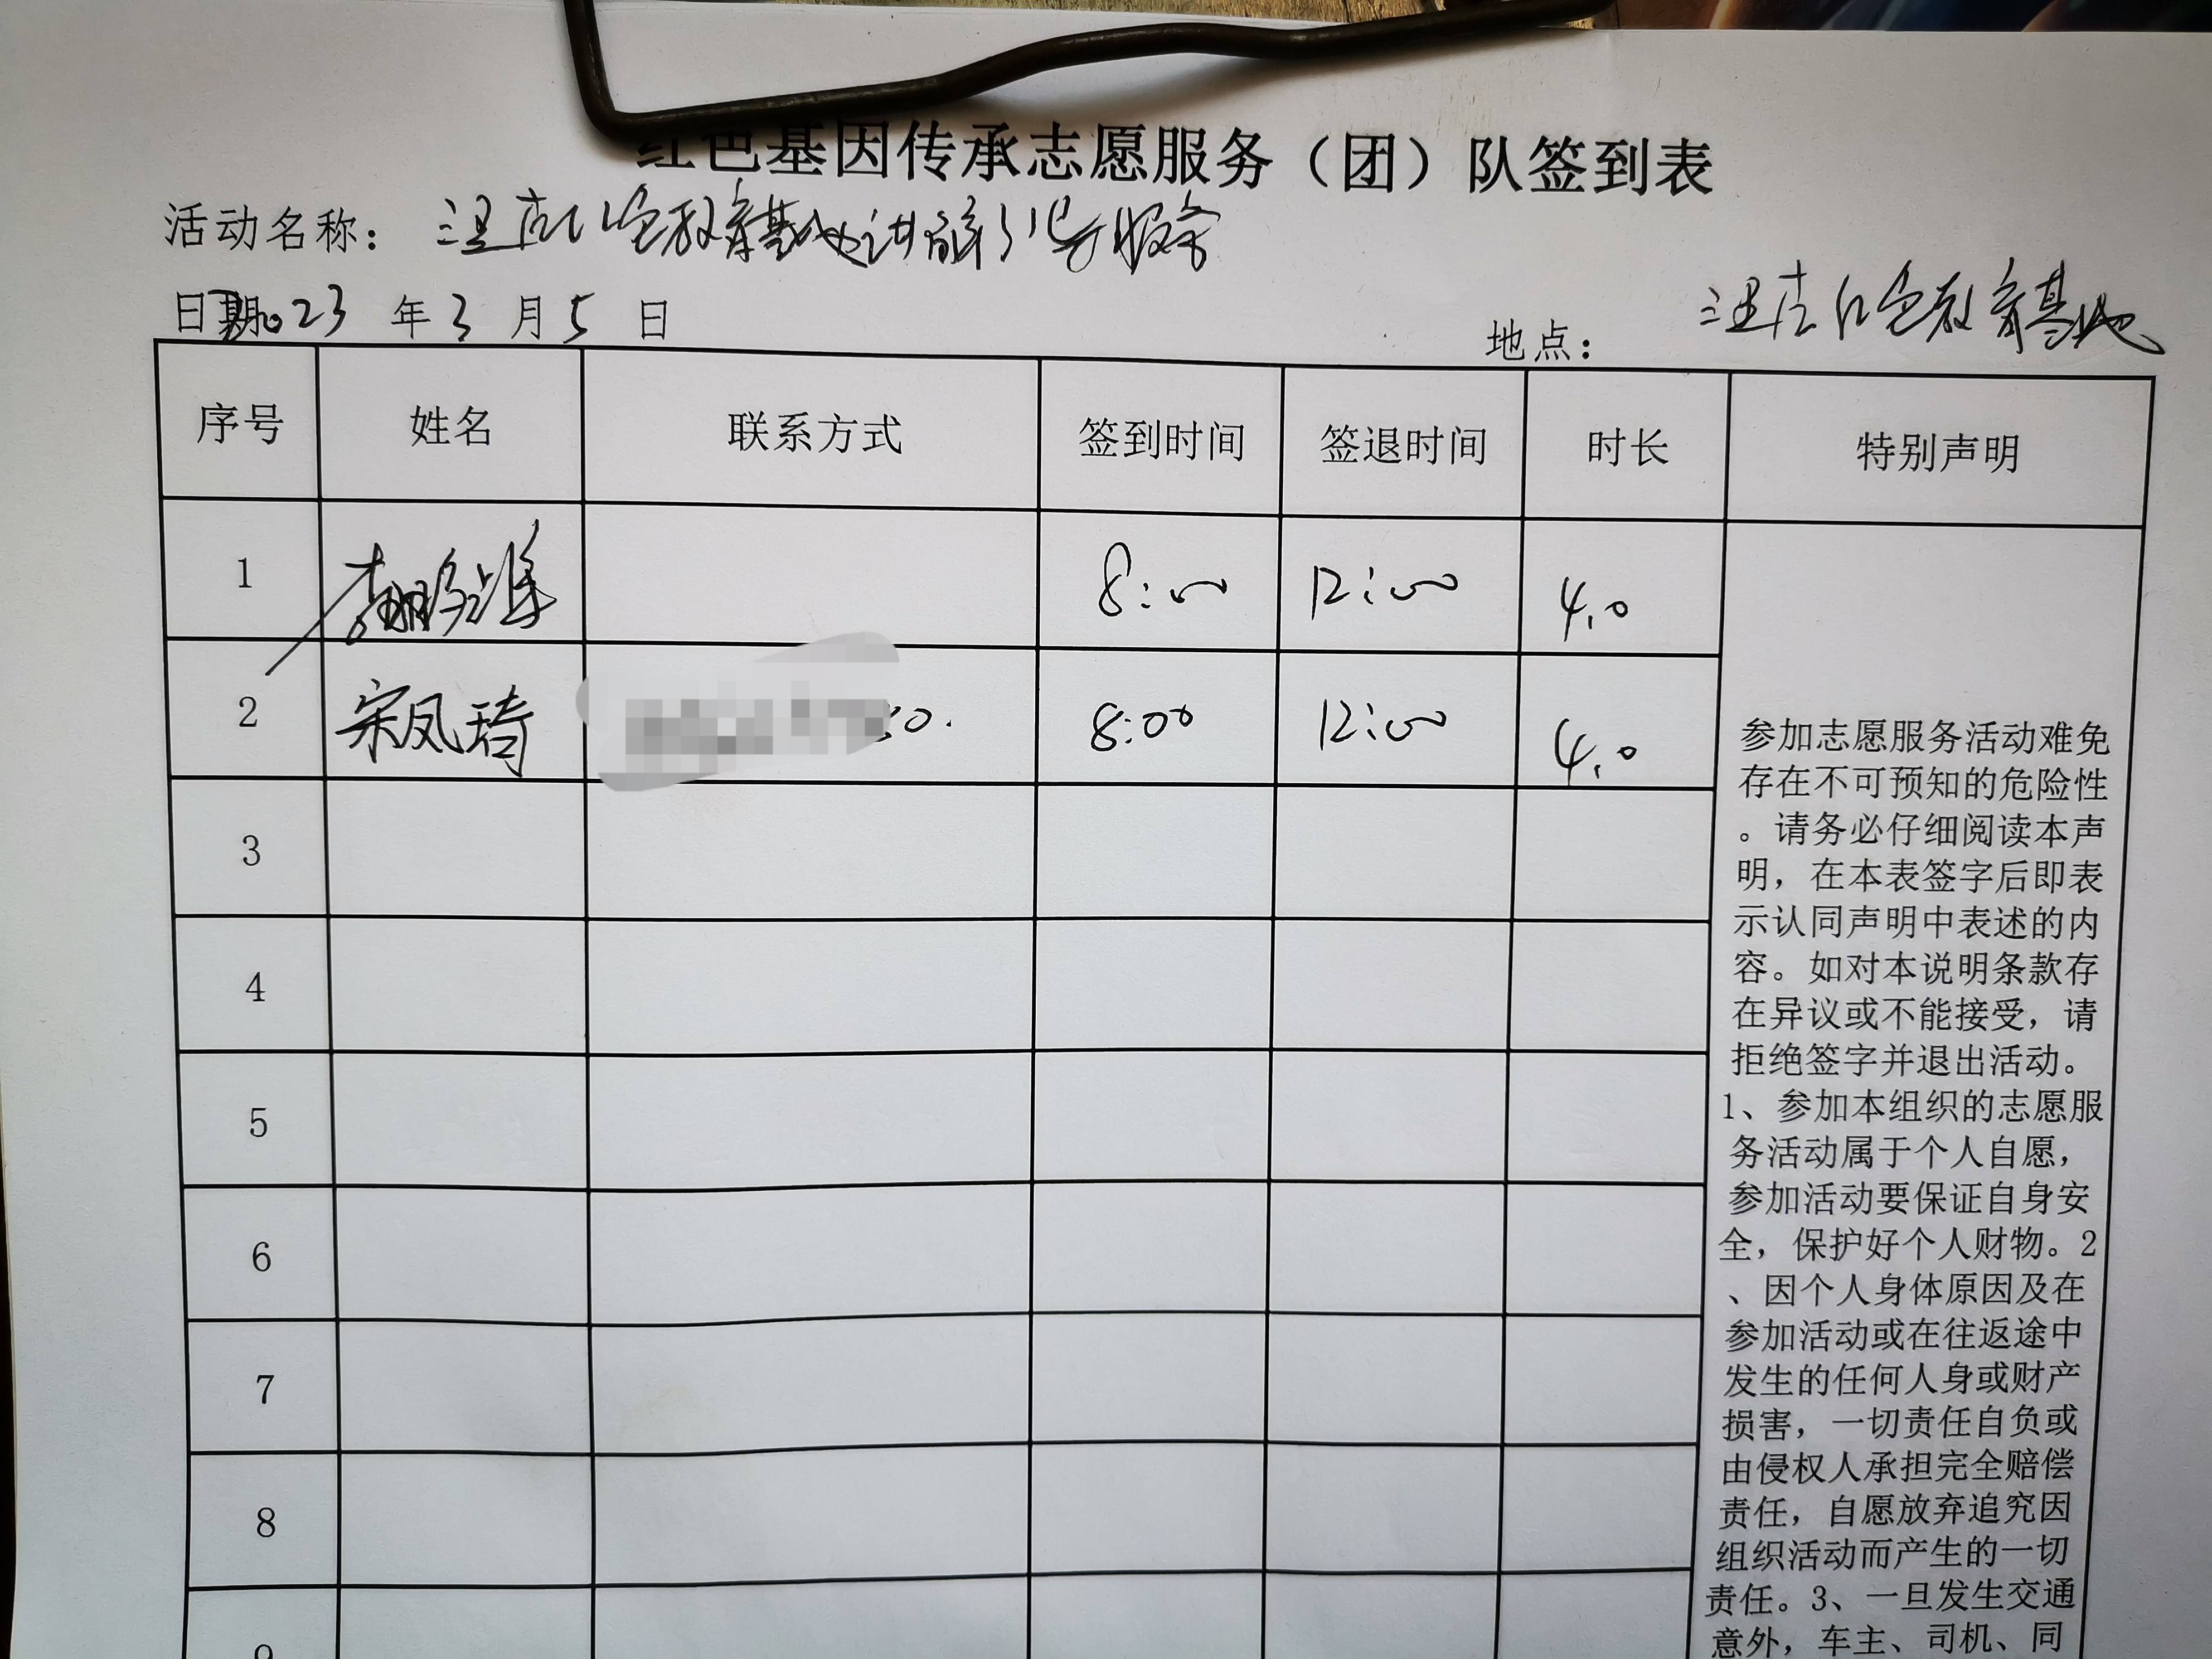 红色基因传承志愿服务（团）队签到表
活动名称： 红色教育基地讲解引导服务
日期 2023 年 3 月 5 日 地点： 红色教育基地
序号 姓名 联系方式 签到时间 签退时间 时长 特别声明
1 8:00 12:00 4.0
2 宋凤琦 8:00 12:00 4.0
3
4
5
6
7
8
9
参加志愿服务活动难免
存在不可预知的危险性
。请务必仔细阅读本声
明，在本表签字后即表
示认同声明中表述的内
容。如对本说明条款存
在异议或不能接受，请
拒绝签字并退出活动。
1、参加本组织的志愿服
务活动属于个人自愿，
参加活动要保证自身安
全，保护好个人财物。2
、因个人身体原因及在
参加活动或在往返途中
发生的任何人身或财产
损害，一切责任自负或
由侵权人承担完全赔偿
责任，自愿放弃追究因
组织活动而产生的一切
责任。3、一旦发生交通
意外，车主、司机、同